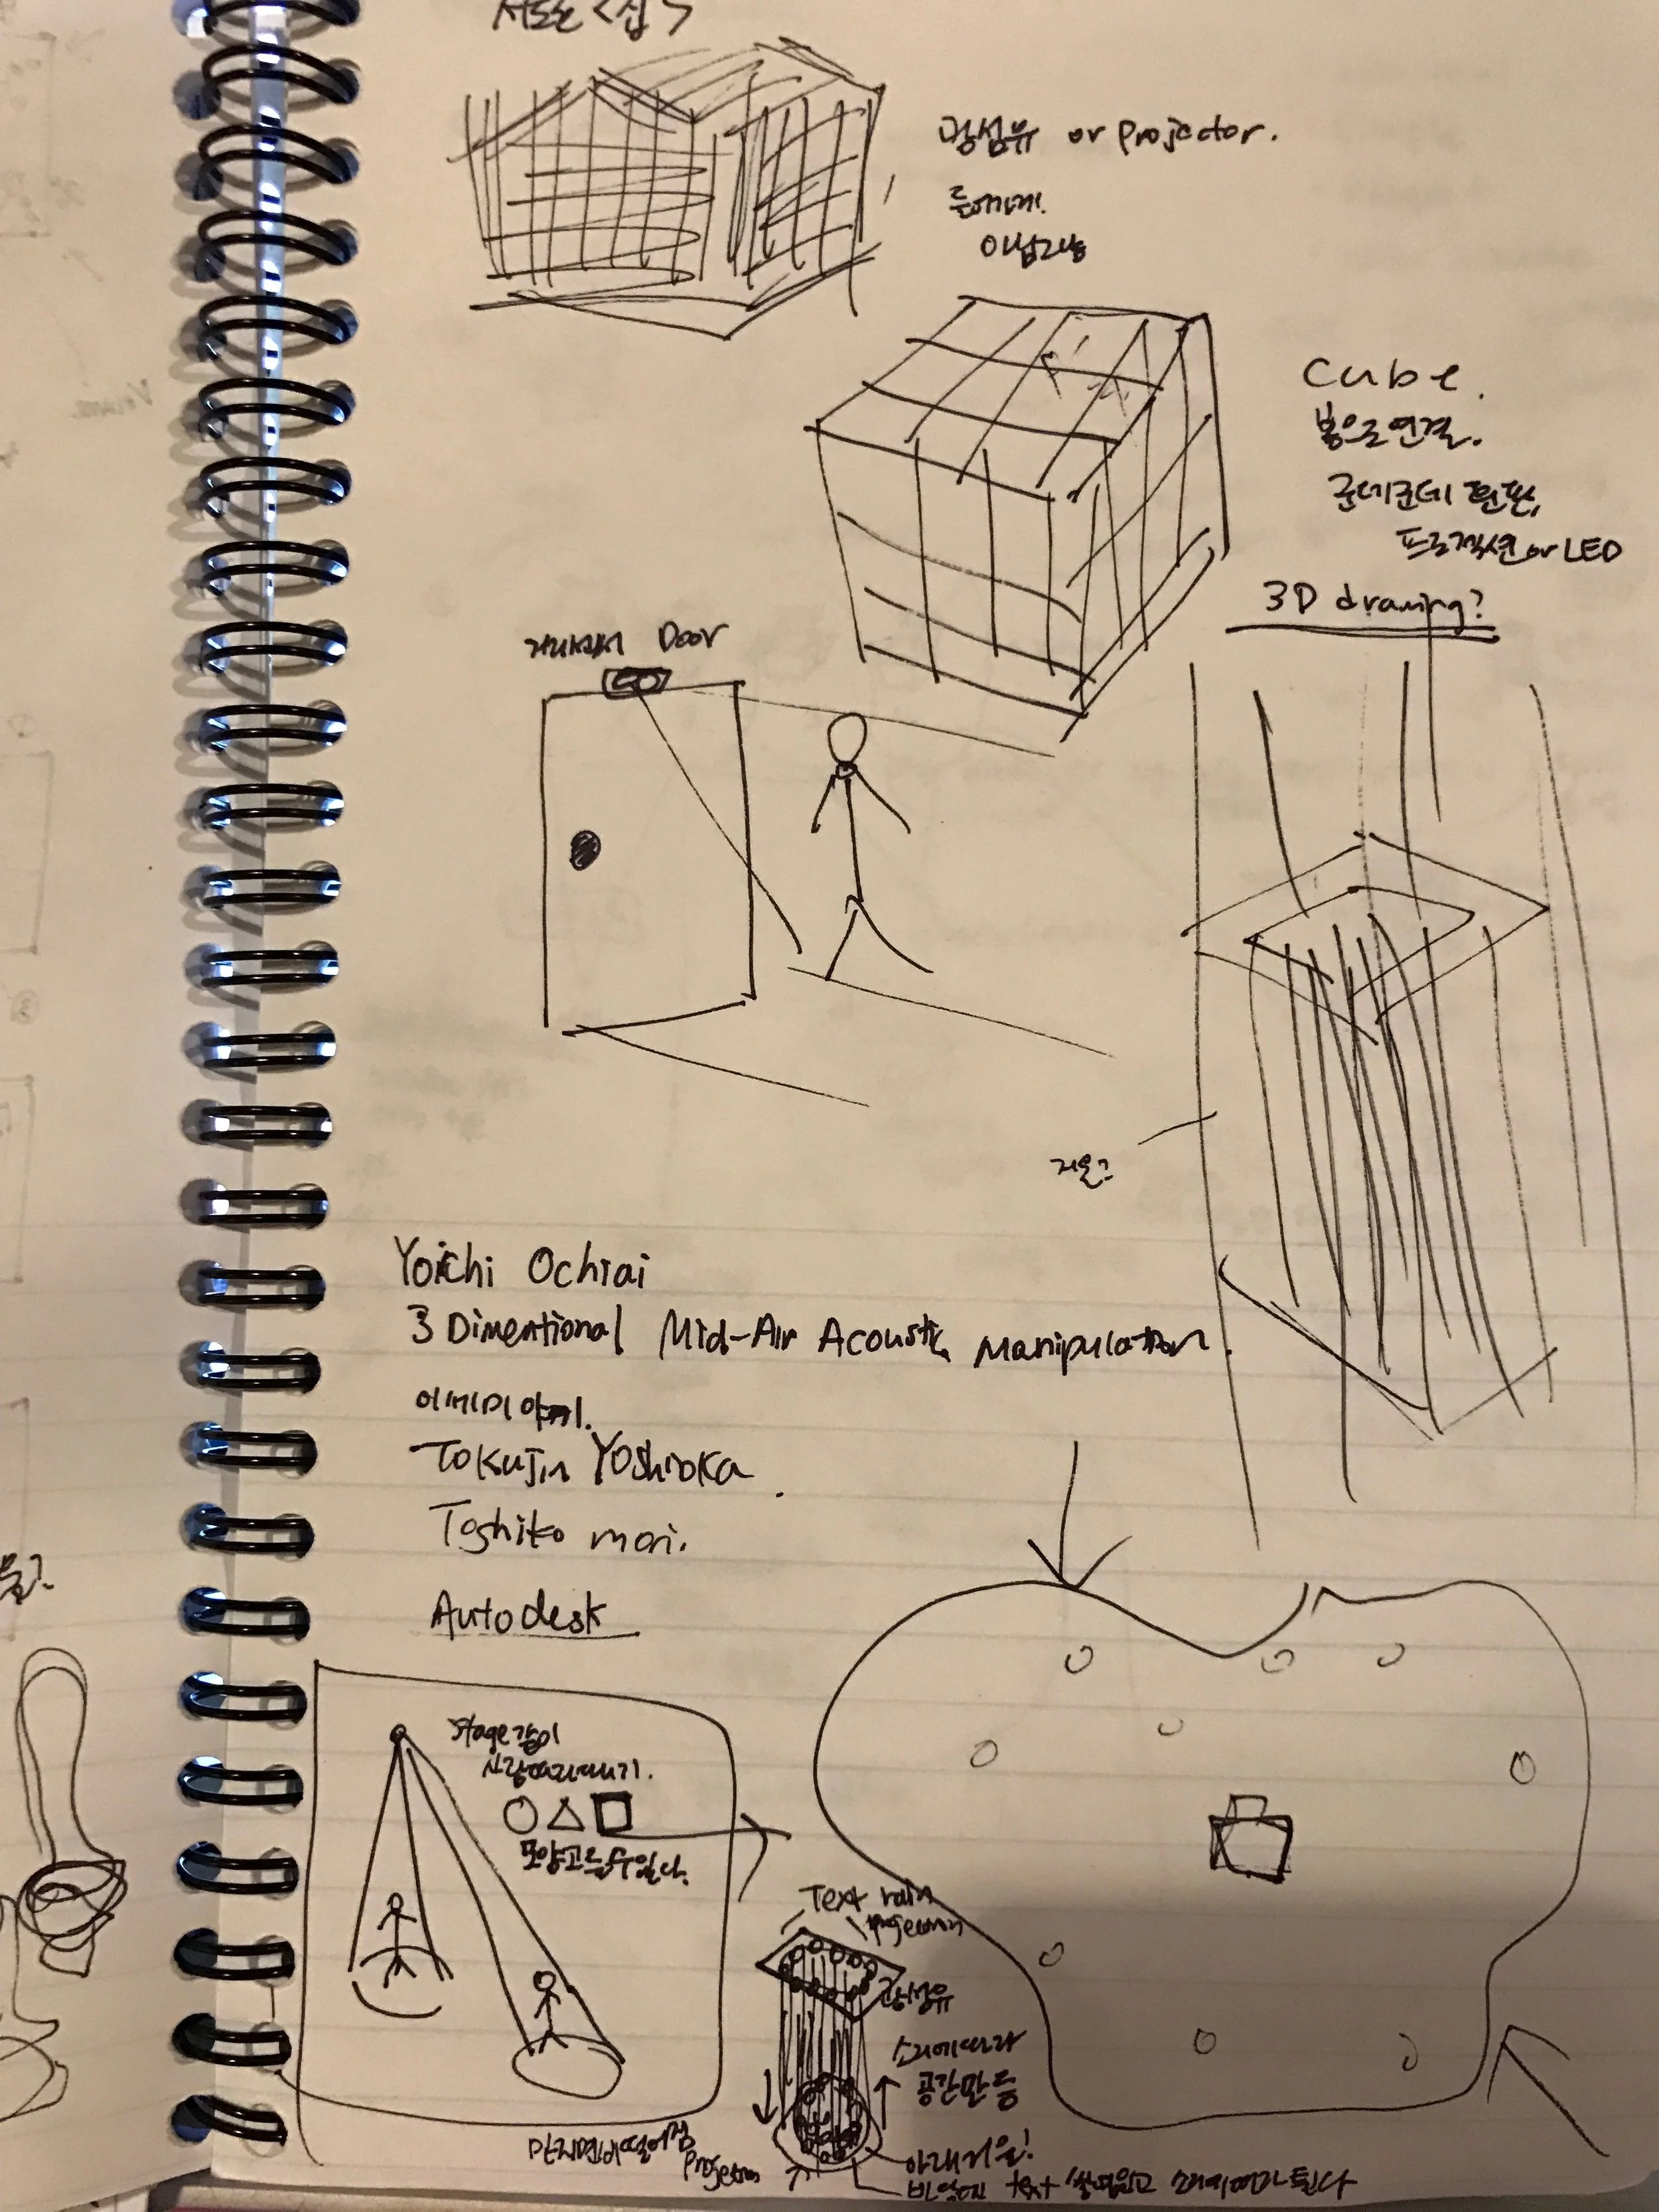 서도호 <집>
광섬유 or projector.
Cube.
봉으로 연결.
군데군데 현판,
프로젝션 or LED
3D drawing?
거리센서 Door
거울?
Yoichi Ochiai
3 Dimentional Mid-Air Acoustic Manipulation.
이세미야케.
Tokujin Yoshioka
Toshiko mori.
Autodesk
Stage 같이
사람따라다니기.
모양 고를 수 있다.
Text rain
projection
광섬유
소리에 따라
공간 만듬
만지면 떨어짐
projection
아래 거울!
바닥에 text